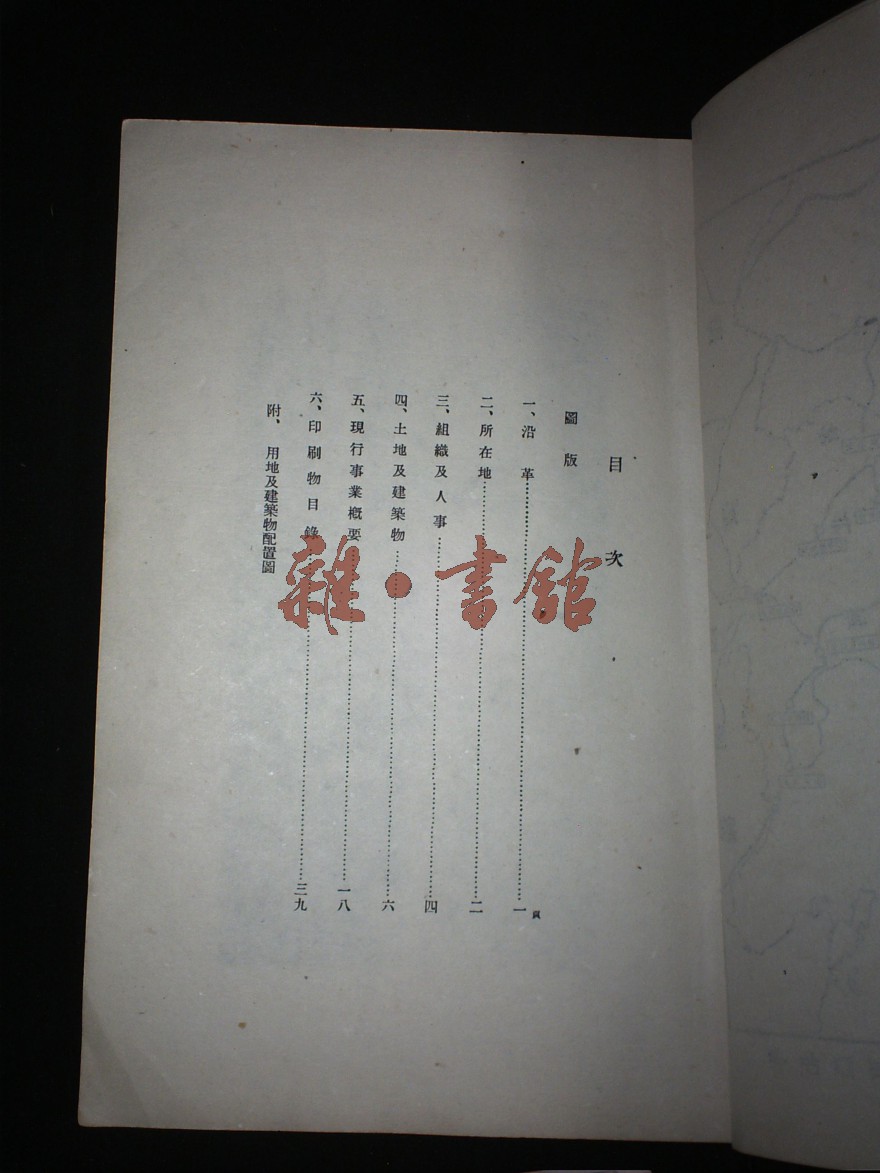 目次
圖版
一、沿革……一頁
二、所在地……二
三、組織及人事……四
四、土地及建築物……六
五、現行事業概要……一八
六、印刷物目錄……三九
附、用地及建築物配置圖
雜·書舘